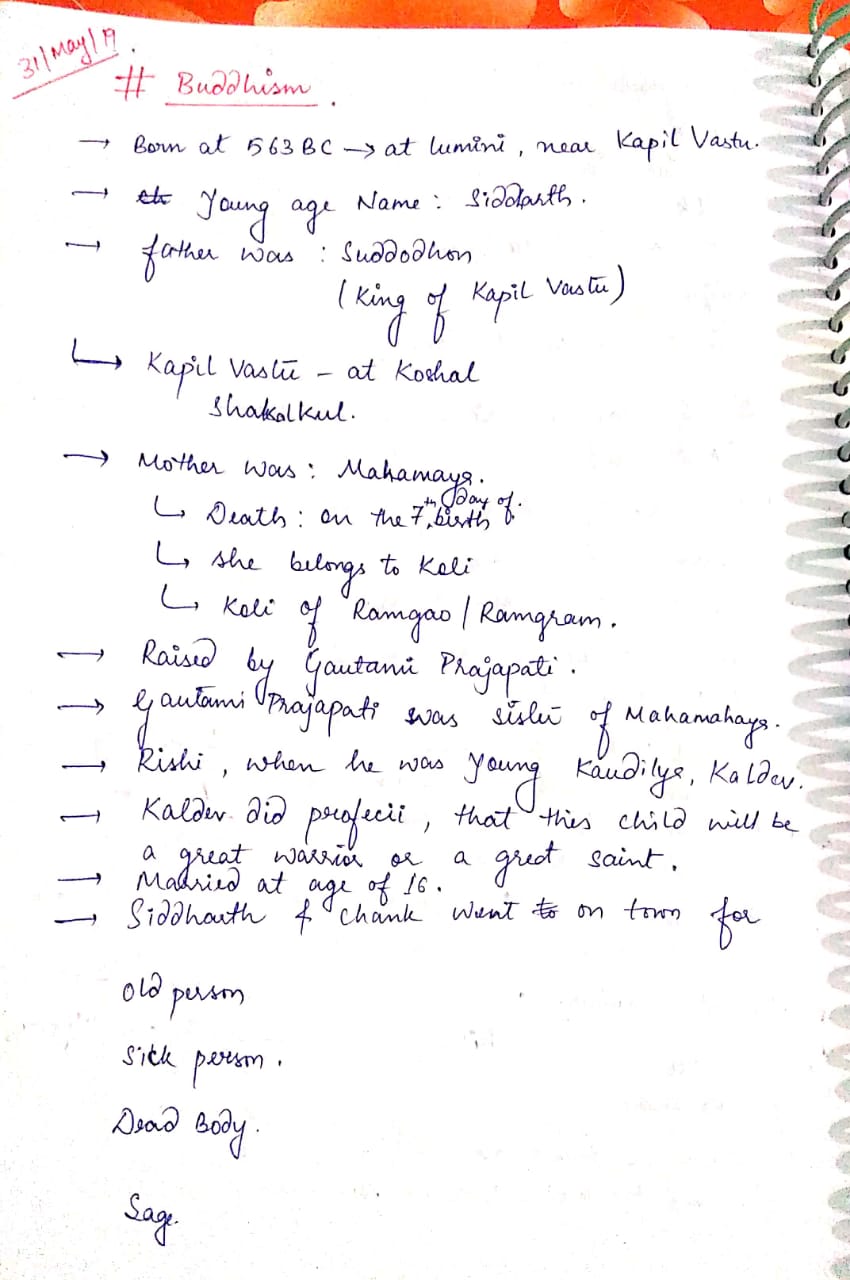 31/May/19.
# Buddhism.
→ Born at 563 BC → at lumini, near Kapil Vastu.
→ Young age Name: Siddarth.
→ father was : Suddodhon
(King of Kapil Vastu)
↳ Kapil Vastu – at Koshal
Shakalkul.
→ Mother was : Mahamaya.
↳ Death : on the 7th day of birth
↳ she belongs to Koli
↳ Koli of Ramgao / Ramgram.
→ Raised by Gautami Prajapati.
→ Gautami Prajapati was sister of Mahamahaya.
→ Rishi, when he was young Kaudilya, Kaldev.
→ Kaldev did profecii, that this child will be
a great warrior or a gret saint.
→ Married at age of 16.
→ Siddharth & chank went to on town for
Old person
Sick person.
Dead Body.
Sage.